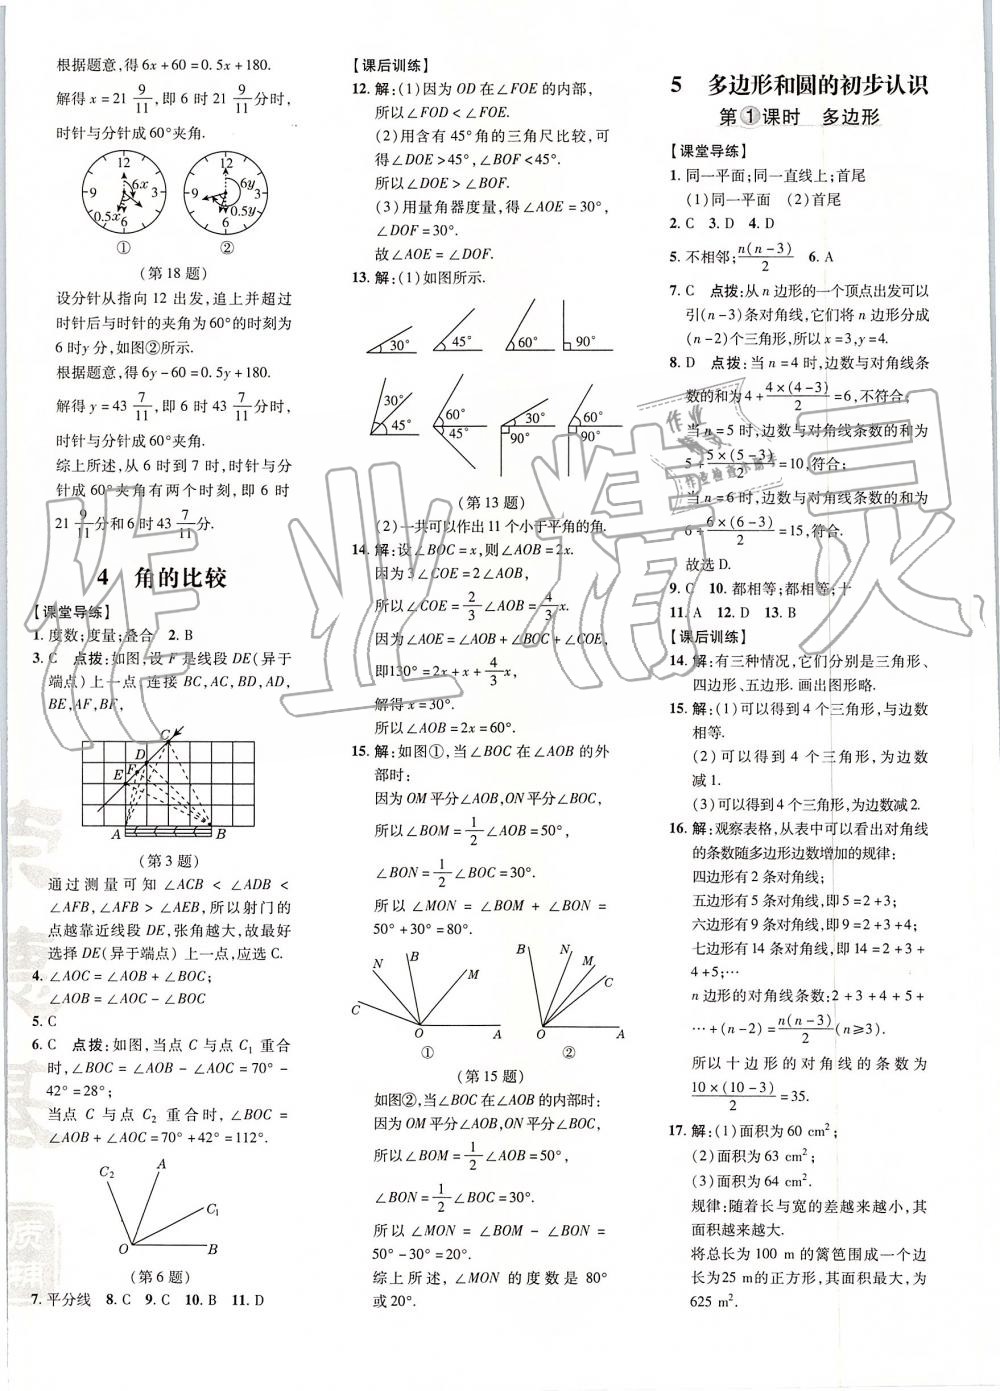 根据题意,得6x+60=0.5x+180.
解得x=21 9/11,即6时21 9/11分时,
时针与分针成60°夹角.
12 9 3 6 6x 0.5x ①
12 9 3 6 6y 0.5y ②
(第18题)
设分针从指向12出发,追上并超过
时针后与时针的夹角为60°的时刻为
6时y分,如图②所示.
根据题意,得6y-60=0.5y+180.
解得y=43 7/11,即6时43 7/11分时,
时针与分针成60°夹角.
综上所述,从6时到7时,时针与分
针成60°夹角有两个时刻,即6时
21 9/11分和6时43 7/11分.
4 角的比较
【课堂导练】
1. 度数;度量;叠合 2. B
3. C 点拨:如图,设F是线段DE(异于
端点)上一点 连接BC,AC,BD,AD,
BE,AF,BF,
C D F E A B
(第3题)
通过测量可知∠ACB<∠ADB<
∠AFB,∠AFB>∠AEB,所以射门的
点越靠近线段DE,张角越大,故最好
选择DE(异于端点)上一点,应选C.
4. ∠AOC=∠AOB+∠BOC;
∠AOB=∠AOC-∠BOC
5. C
6. C 点拨:如图,当点C与点C₁重合
时,∠BOC=∠AOB-∠AOC=70°-
42°=28°;
当点C与点C₂重合时,∠BOC=
∠AOB+∠AOC=70°+42°=112°.
C₂ A C₁ O B
(第6题)
7. 平分线 8. C 9. C 10. B 11. D
【课后训练】
12. 解:(1)因为OD在∠FOE的内部,
所以∠FOD<∠FOE.
(2)用含有45°角的三角尺比较,可
得∠DOE>45°,∠BOF<45°.
所以∠DOE>∠BOF.
(3)用量角器度量,得∠AOE=30°,
∠DOF=30°.
故∠AOE=∠DOF.
13. 解:(1)如图所示.
30° 45° 60° 90°
30° 45° 60° 45° 30° 90° 60° 90°
(第13题)
(2)一共可以作出11个小于平角的角.
14. 解:设∠BOC=x,则∠AOB=2x.
因为3∠COE=2∠AOB=4x,
所以∠COE=2/3∠AOB=4/3x.
因为∠AOE=∠AOB+∠BOC+∠COE,
即130°=2x+x+4/3x,
解得x=30°.
所以∠AOB=2x=60°.
15. 解:如图①,当∠BOC在∠AOB的外
部时:
因为OM平分∠AOB,ON平分∠BOC,
所以∠BOM=1/2∠AOB=50°,
∠BON=1/2∠BOC=30°.
所以∠MON=∠BOM+∠BON=
50°+30°=80°.
N B M C O A ①
B N M C O A ②
(第15题)
如图②,当∠BOC在∠AOB的内部时:
因为OM平分∠AOB,ON平分∠BOC,
所以∠BOM=1/2∠AOB=50°,
∠BON=1/2∠BOC=30°.
所以∠MON=∠BOM-∠BON=
50°-30°=20°.
综上所述,∠MON的度数是80°
或20°.
5 多边形和圆的初步认识
第①课时 多边形
【课堂导练】
1. 同一平面;同一直线上;首尾
(1)同一平面 (2)首尾
2. C 3. D 4. D
5. 不相邻;n(n-3)/2 6. A
7. C 点拨:从n边形的一个顶点出发可以
引(n-3)条对角线,它们将n边形分成
(n-2)个三角形,所以x=3,y=4.
8. D 点拨:当n=4时,边数与对角线条
数的和为4+4×(4-3)/2=6,不符合;
当n=5时,边数与对角线条数的和为
5+5×(5-3)/2=10,符合;
当n=6时,边数与对角线条数的和为
6+6×(6-3)/2=15,符合.
故选D.
9. C 10. 都相等;都相等;十
11. A 12. D 13. B
【课后训练】
14. 解:有三种情况,它们分别是三角形、
四边形、五边形. 画出图形略.
15. 解:(1)可以得到4个三角形,与边数
相等.
(2)可以得到4个三角形,为边数
减1.
(3)可以得到4个三角形,为边数减2.
16. 解:观察表格,从表中可以看出对角线
的条数随多边形边数增加的规律:
四边形有2条对角线;
五边形有5条对角线,即5=2+3;
六边形有9条对角线,即9=2+3+4;
七边形有14条对角线,即14=2+3+
4+5;…
n边形的对角线条数:2+3+4+5+
…+(n-2)=n(n-3)/2(n≥3).
所以十边形的对角线的条数为
10×(10-3)/2=35.
17. 解:(1)面积为60 cm²;
(2)面积为63 cm²;
(3)面积为64 cm².
规律:随着长与宽的差越来越小,其
面积越来越大.
将总长为100 m的篱笆围成一个边
长为25 m的正方形,其面积最大,为
625 m².
作业精灵